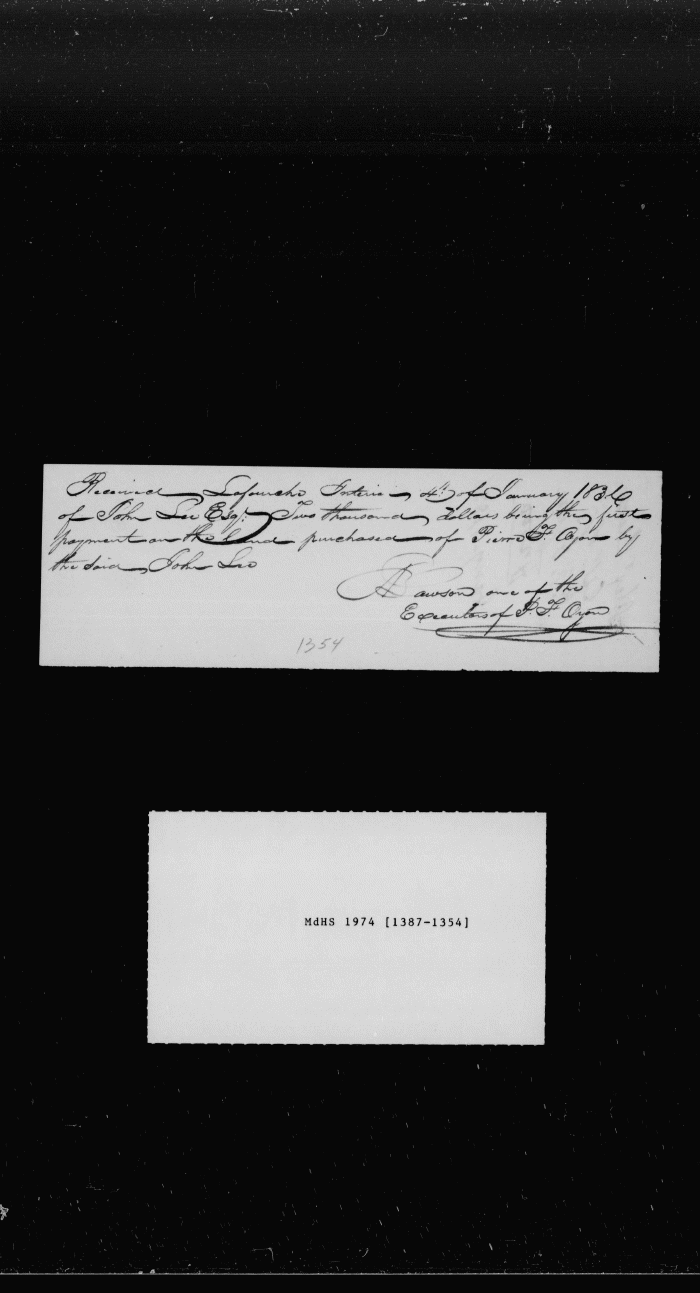 Received Lafourche Interior 4th of January 1836
of John Lee Esqr. Two thousand dollars being the first
payment on the land purchased of Pierre F. Ayon by
the said John Lee
Dawson one of the
Executors of P. F. Ayon
1354
MdHS 1974 [1387-1354]